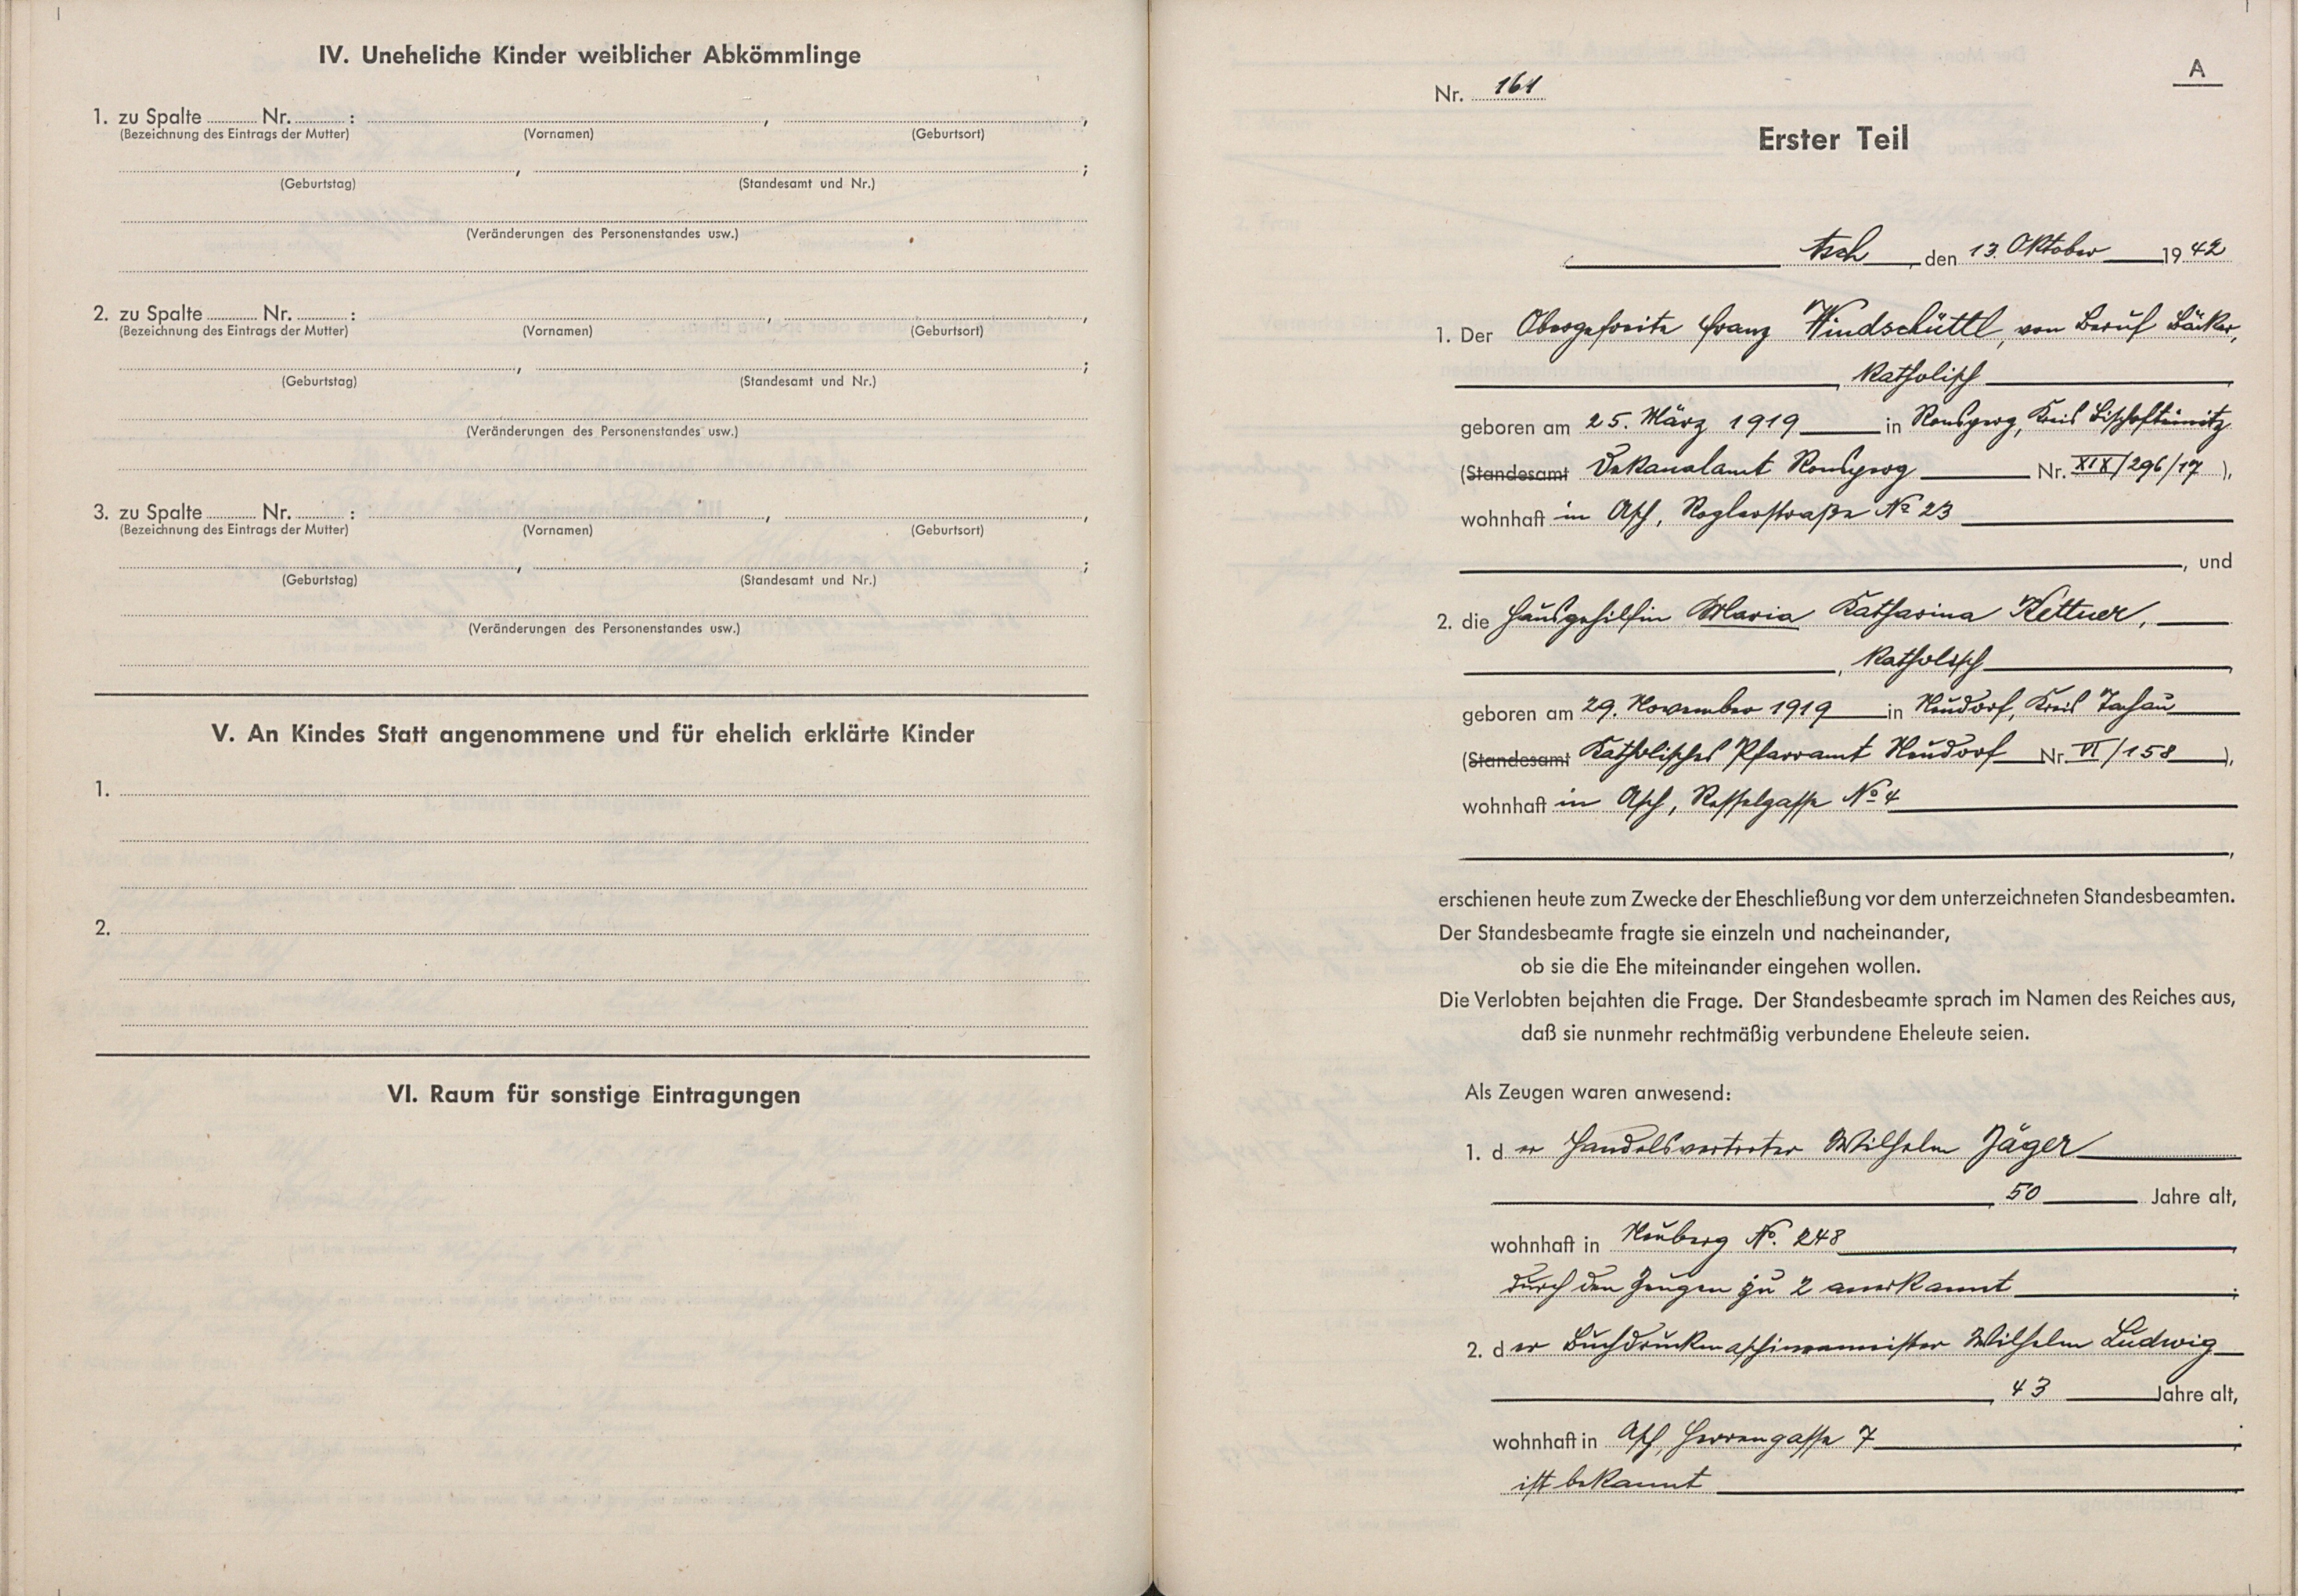 IV. Uneheliche Kinder weiblicher Abkömmlinge
1. zu Spalte Nr. : , ,
(Bezeichnung des Eintrags der Mutter) (Vornamen) (Geburtsort)
, ;
(Geburtstag) (Standesamt und Nr.)
(Veränderungen des Personenstandes usw.)
2. zu Spalte Nr. : , ,
(Bezeichnung des Eintrags der Mutter) (Vornamen) (Geburtsort)
, ;
(Geburtstag) (Standesamt und Nr.)
(Veränderungen des Personenstandes usw.)
3. zu Spalte Nr. : , ,
(Bezeichnung des Eintrags der Mutter) (Vornamen) (Geburtsort)
, ;
(Geburtstag) (Standesamt und Nr.)
(Veränderungen des Personenstandes usw.)
V. An Kindes Statt angenommene und für ehelich erklärte Kinder
1.
2.
VI. Raum für sonstige Eintragungen
A
Nr. 161
Erster Teil
Asch, den 13. Oktober 1942
1. Der Obergefreite Franz Windschüttl, von Beruf Bäcker,
, katholisch,
geboren am 25. März 1919 in Ronsperg, Kreis Bischofteinitz
(Standesamt Dekanalamt Ronsperg Nr. XIX/296/17),
wohnhaft in Asch, Roglerstraße No 23
, und
2. die Hausgehilfin Maria Katharina Kettner,
, katholisch,
geboren am 29. November 1919 in Neudorf, Kreis Tachau
(Standesamt Katholisches Pfarramt Neudorf Nr. VI/158),
wohnhaft in Asch, Rosselgasse No 4
,
erschienen heute zum Zwecke der Eheschließung vor dem unterzeichneten Standesbeamten.
Der Standesbeamte fragte sie einzeln und nacheinander,
ob sie die Ehe miteinander eingehen wollen.
Die Verlobten bejahten die Frage. Der Standesbeamte sprach im Namen des Reiches aus,
daß sie nunmehr rechtmäßig verbundene Eheleute seien.
Als Zeugen waren anwesend:
1. der Handelsvertreter Wilhelm Jäger
, 50 Jahre alt,
wohnhaft in Neuberg No. 248,
durch den Zeugen zu 2 anerkannt;
2. der Buchdruckmaschinenmeister Wilhelm Ludwig
, 43 Jahre alt,
wohnhaft in Asch, Herrengasse 7;
ist bekannt